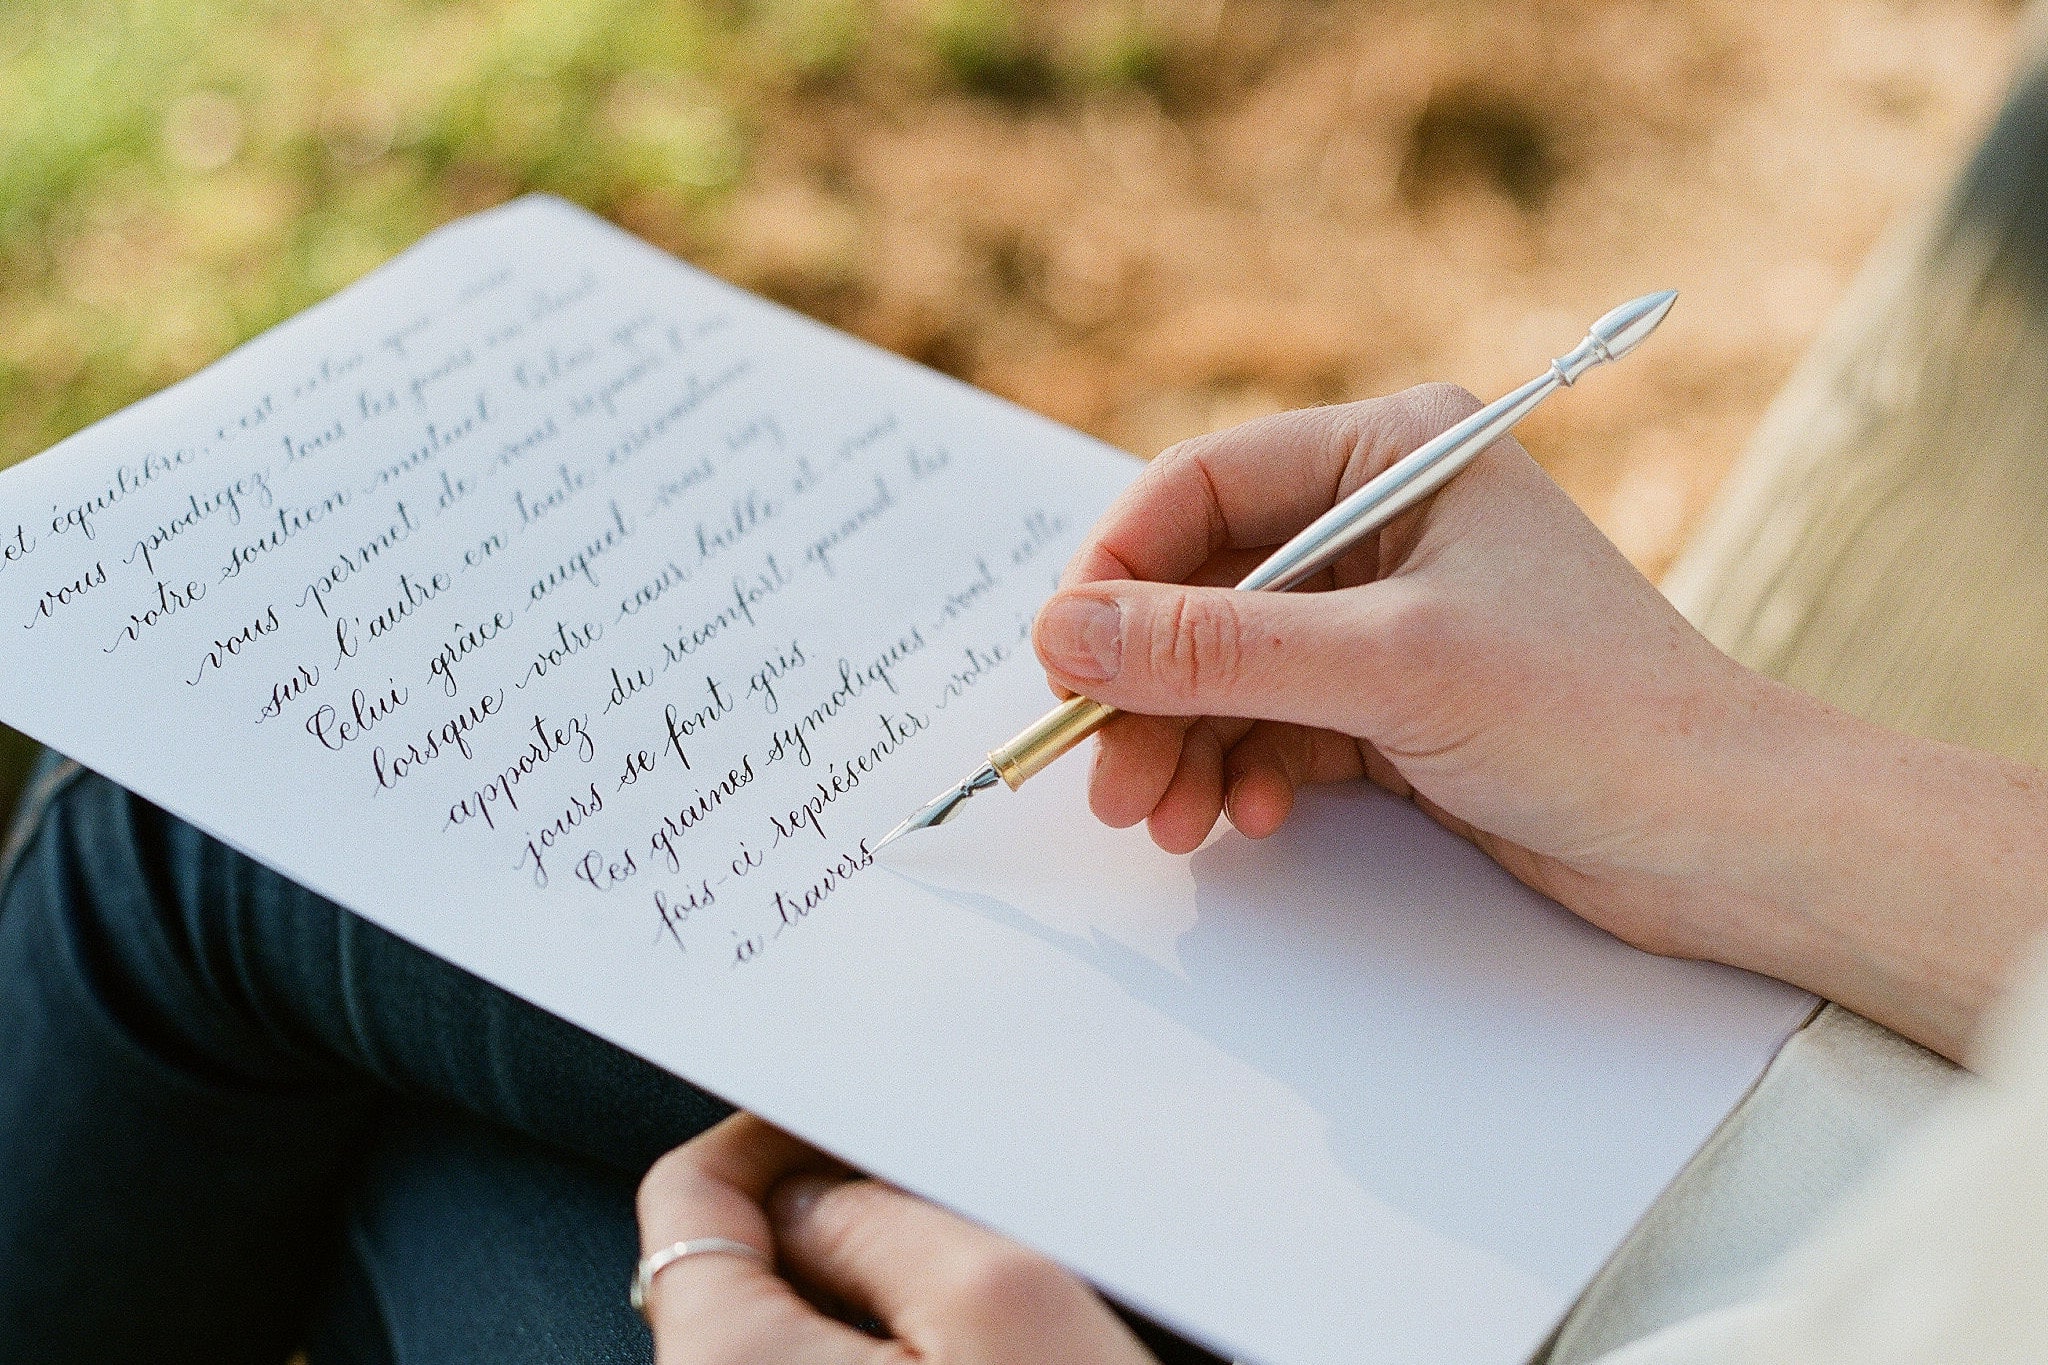 et équilibre, c'est celui que vous
vous prodiguez tous les jours en étant
votre soutien mutuel. Celui qui
vous permet de vous reposer l'un
sur l'autre en toute circonstance
Celui grâce auquel vous
lorsque votre cœur brille et vous
apportez du réconfort quand les
jours se font gris.
Ces graines symoliques vont cette
fois-ci représenter votre
à travers